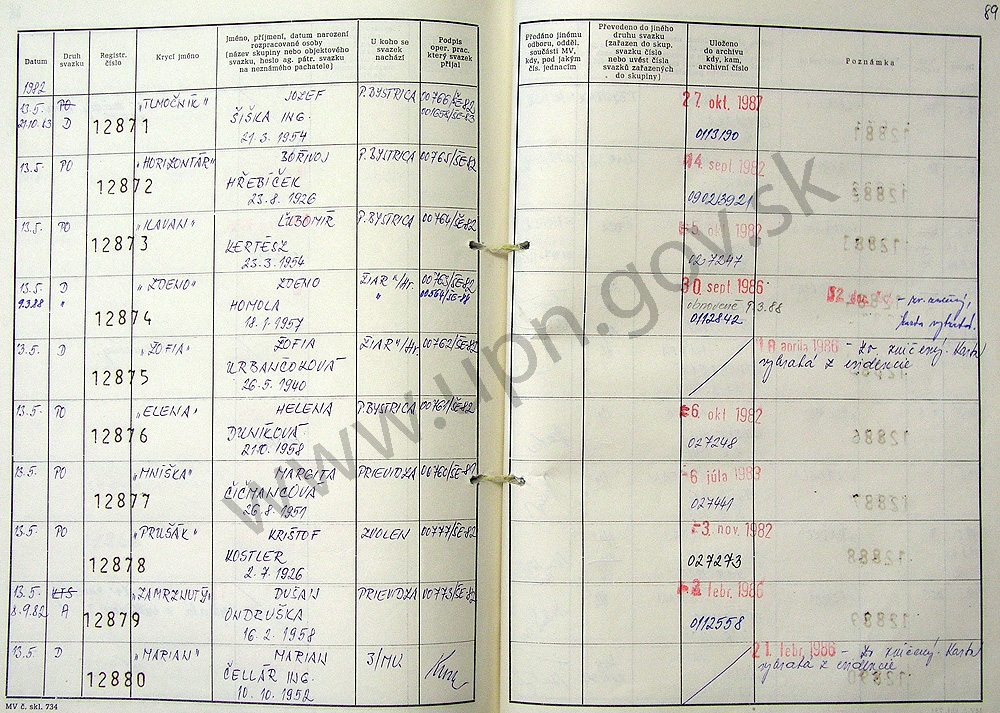 89
Datum
Druh svazku
Registr. číslo
Krycí jméno
Jméno, příjmení, datum narození rozpracované osoby (název skupiny nebo objektového svazku, heslo ag. pátr. svazku na neznámého pachatele)
U koho se svazek nachází
Podpis oper. prac. který svazek přijal
Předáno jinému odboru, odděl. součásti MV, kdy, pod jakým čís. jednacím
Převedeno do jiného druhu svazku (zařazen do skup. svazku číslo nebo uvést čísla svazků zařazených do skupiny)
Uloženo do archivu kdy, kam, archivní číslo
Poznámka
1982
13.5. PO "TLMOČNÍK" JOZEF P. BYSTRICA 00766/ŠE-82 27. okt. 1987
21.10.83 D 12871 ŠIŠILA ING. 0113190
21.3.1954
13.5. PO "HORIZONTÁR" BOŘIVOJ P. BYSTRICA 00765/ŠE-82 14. sept. 1982
12872 HŘEBÍČEK 0902/3921
23.8.1926
13.5. PO "KAVAN" ĽUBOMÍR P. BYSTRICA 00764/ŠE-82 -5. okt. 1982
12873 KERTÉSZ 027247
23.3.1954
13.5. D "ZDENO" ZDENO ŽIAR n/Hr. 00763/ŠE-82 30. sept 1986
9.3.88 " HOMOLA " 00564/ŠE-88 obnovené 9.3.88
12874 18.1.1957 0112842
13.5. D "ŽOFIA" ŽOFIA ŽIAR n/Hr. 00762/ŠE-82 apríla 1986 - zv. zničený. Karta
12875 URBANČOKOVÁ vybratá z evidencie
26.5.1940
13.5. PO "ELENA" HELENA P. BYSTRICA 00761/ŠE-82 -6. okt 1982
12876 DUNÍKOVÁ 027248
21.10.1958
13.5. PO "MNÍŠKA" MARGITA PRIEVIDZA 00760/ŠE-82 -6 júla 1983
12877 ČIČMANCOVÁ 027441
26.8.1951
13.5. PO "PRUŠÁK" KRIŠTOF ZVOLEN 00777/ŠE-82 -3. nov. 1982
12878 KOSTLER 027273
2.7.1926
13.5. KTS "ZAMRZNUTÝ" DUŠAN PRIEVIDZA 00773/ŠE-82 febr. 1986
8.9.82 A 12879 ONDRUŠKA 0112558
16.2.1958
13.5. D "MARIAN" MARIAN 3/MU 21. febr. 1986 - zv zničený. Karta
12880 ČELLÁR ING. vybratá z evidencie
10.10.1952
MV č. skl. 734
www.upn.gov.sk